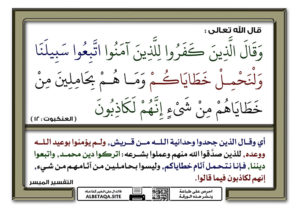 قال الله تعالى :
وَقَالَ الَّذِينَ كَفَرُوا لِلَّذِينَ آمَنُوا اتَّبِعُوا سَبِيلَنَا
وَلْنَحْمِلْ خَطَايَاكُمْ وَمَا هُمْ بِحَامِلِينَ مِنْ
خَطَايَاهُمْ مِنْ شَيْءٍ إِنَّهُمْ لَكَاذِبُونَ
(العنكبوت : ١٢)
أي وقال الذين جحدوا وحدانية الله من قريش، ولم يؤمنوا بوعيد الله
ووعده، للذين صدَّقوا الله منهم وعملوا بشرعه: اتركوا دين محمد، واتبعوا
ديننا، فإنا نتحمل آثام خطاياكم، وليسوا بحاملين من آثامهم من شيء،
إنهم لكاذبون فيما قالوا.
التفسير الميسر
ALBETAQA.SITE
احرص على طباعة
ونشر هذه البطاقة